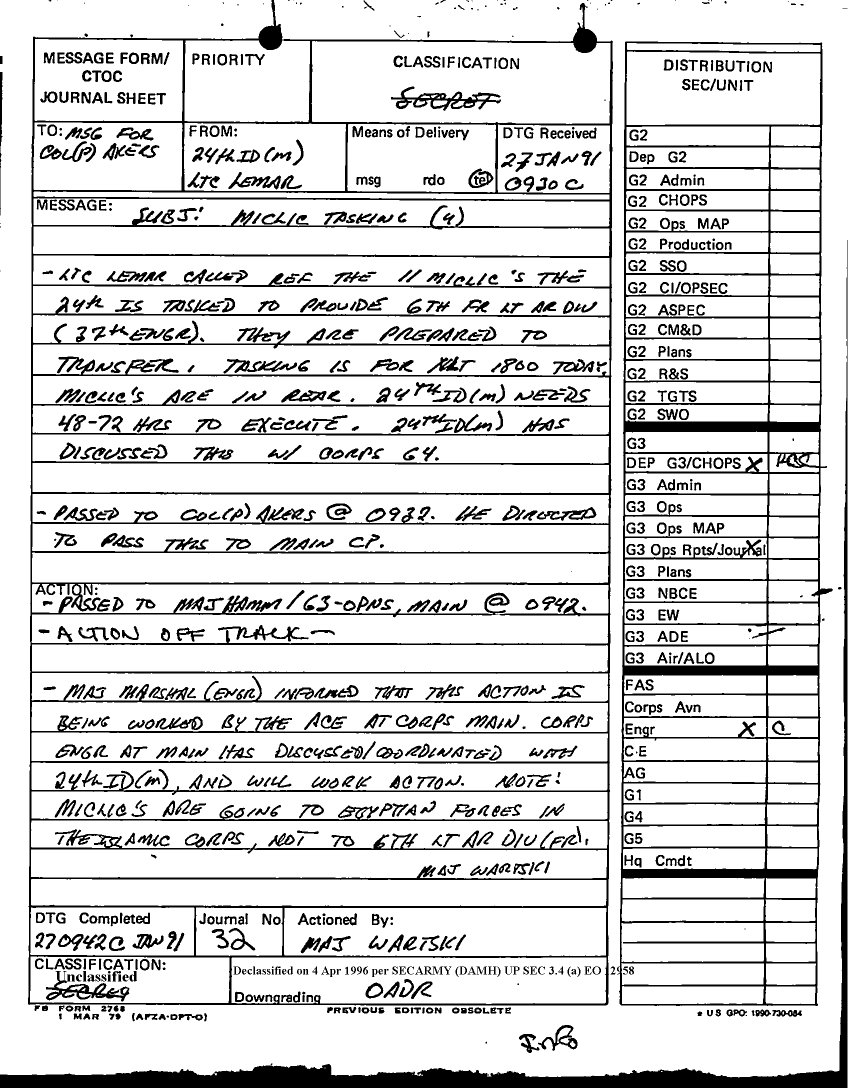 MESSAGE FORM/
CTOC
JOURNAL SHEET
PRIORITY
CLASSIFICATION
SECRET
TO: MSG FOR
COL(P) AKERS
FROM:
24th ID(M)
LTC LEMAR
Means of Delivery
msg rdo tel
DTG Received
27 JAN 91
0930 C
MESSAGE:
SUBJ: MICLIC TASKING (U)
- LTC LEMAR CALLED REF THE 11 MICLIC'S THE
24th IS TASKED TO PROVIDE 6TH FR LT AR DIV
(37th ENGR). THEY ARE PREPARED TO
TRANSFER. TASKING IS FOR NLT 1800 TODAY,
MICLIC'S ARE IN REAR. 24TH ID(M) NEEDS
48-72 HRS TO EXECUTE. 24TH ID(M) HAS
DISCUSSED THIS W/ CORPS G4.
- PASSED TO COL(P) AKERS @ 0932. HE DIRECTED
TO PASS THIS TO MAIN CP.
ACTION:
- PASSED TO MAJ HAMM/G3-OPNS, MAIN @ 0942.
- ACTION OFF TRACK -
- MAJ MARSHAL (ENGR) INFORMED THAT THIS ACTION IS
BEING WORKED BY THE ACE AT CORPS MAIN. CORPS
ENGR AT MAIN HAS DISCUSSED/COORDINATED WITH
24th ID(M), AND WILL WORK ACTION. NOTE:
MICLIC'S ARE GOING TO EGYPTIAN FORCES IN
THE ISLAMIC CORPS, NOT TO 6TH LT AR DIV (FR).
MAJ WARTSKI
DTG Completed
270942C JAN 91
Journal No
32
Actioned By:
MAJ WARTSKI
CLASSIFICATION:
Unclassified
SECRET
Declassified on 4 Apr 1996 per SECARMY (DAMH) UP SEC 3.4 (a) EO 12958
Downgrading OADR
FB FORM 2768
1 MAR 79 (AFZA-DPT-O)
PREVIOUS EDITION OBSOLETE
* U S GPO: 1990-730-084
Info
DISTRIBUTION
SEC/UNIT
G2
Dep G2
G2 Admin
G2 CHOPS
G2 Ops MAP
G2 Production
G2 SSO
G2 CI/OPSEC
G2 ASPEC
G2 CM&D
G2 Plans
G2 R&S
G2 TGTS
G2 SWO
G3
DEP G3/CHOPS X
G3 Admin
G3 Ops
G3 Ops MAP
G3 Ops Rpts/Journal X
G3 Plans
G3 NBCE
G3 EW
G3 ADE
G3 Air/ALO
FAS
Corps Avn
Engr X C
C-E
AG
G1
G4
G5
Hq Cmdt